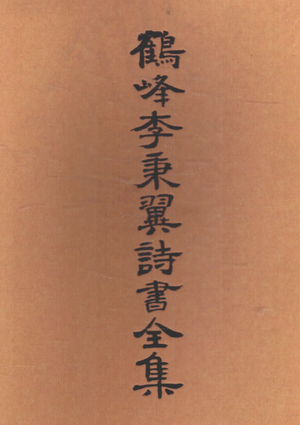 鶴峰李秉翼詩書全集